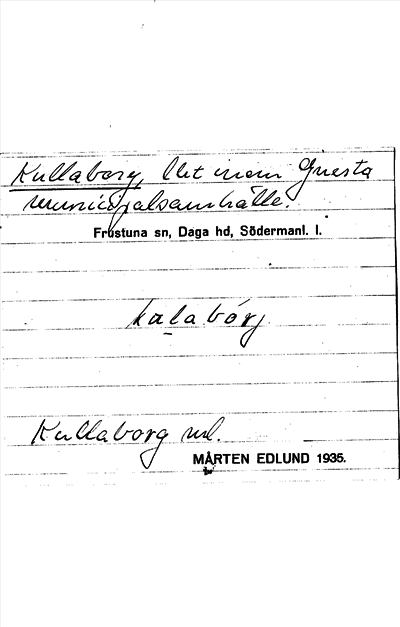 Kullaborg, lht inom Gnesta
municipalsamhälle.
Frustuna sn, Daga hd, Södermanl. l.
kalabórj
Kullaborg url.
MÅRTEN EDLUND 1935.